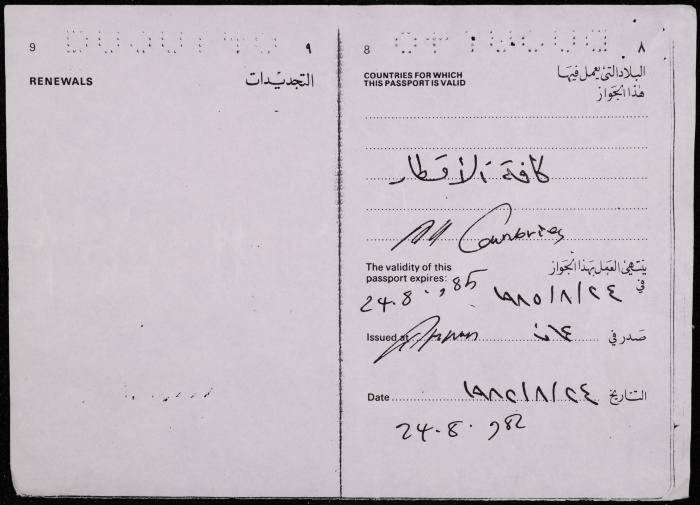 9
٩
RENEWALS
التجديدات
8
٨
COUNTRIES FOR WHICH
THIS PASSPORT IS VALID
البلاد التي يعمل فيها
هذا الجواز
كافة الأقطار
All Countries
The validity of this
passport expires:
ينتهي العمل بهذا الجواز
في
١٩٨٥/٨/٢٤
24.8.985
Issued at
عمان
صدر في
Date
١٩٨٢/٨/٢٤
التاريخ
24.8.982